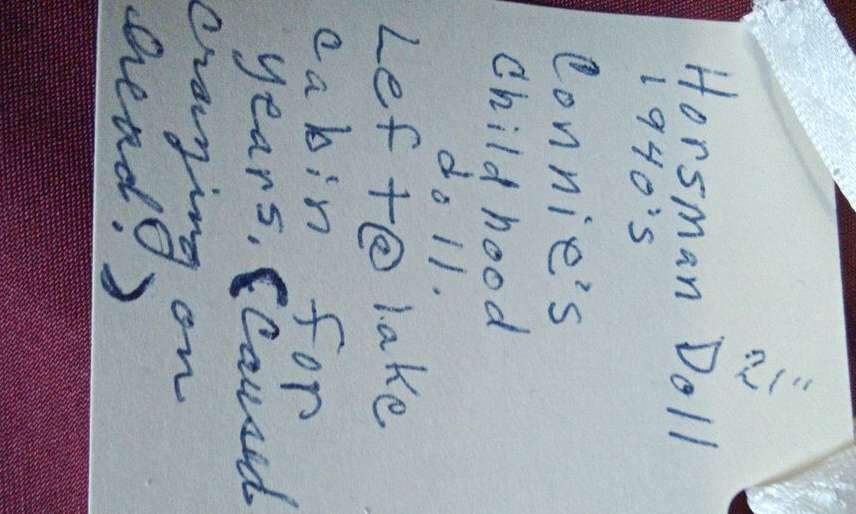 21"
Horsman Doll
1940's
Connie's
childhood
doll.
Left @ lake
cabin for
years. (Caused
crazing on
head.)